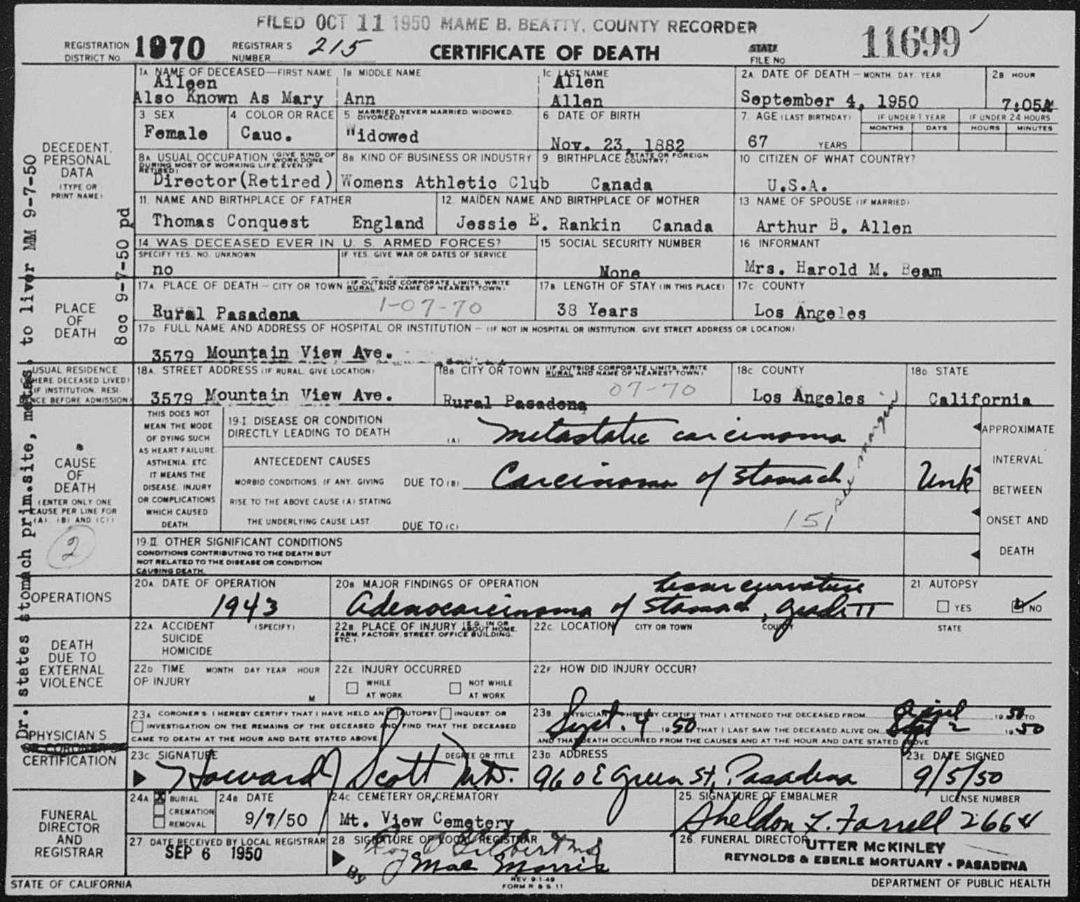 FILED OCT 11 1950 MAME B. BEATTY, COUNTY RECORDER
REGISTRATION DISTRICT NO 1970 REGISTRAR'S NUMBER 215 CERTIFICATE OF DEATH STATE FILE NO 11699
1A NAME OF DECEASED—FIRST NAME 1B MIDDLE NAME 1C LAST NAME 2A DATE OF DEATH—MONTH, DAY, YEAR 2B HOUR
Aileen Allen
Also Known As Mary Ann Allen September 4, 1950 7:05A
DECEDENT PERSONAL DATA (TYPE OR PRINT NAME)
3 SEX 4 COLOR OR RACE 5 MARRIED, NEVER MARRIED, WIDOWED, DIVORCED? 6 DATE OF BIRTH 7 AGE (LAST BIRTHDAY) IF UNDER 1 YEAR IF UNDER 24 HOURS
MONTHS DAYS HOURS MINUTES
Female Cauc. Widowed Nov. 23, 1882 67 YEARS
8A USUAL OCCUPATION (GIVE KIND OF WORK DONE DURING MOST OF WORKING LIFE, EVEN IF RETIRED) 8B KIND OF BUSINESS OR INDUSTRY 9 BIRTHPLACE (STATE OR FOREIGN COUNTRY) 10 CITIZEN OF WHAT COUNTRY?
Director(Retired) Womens Athletic Club Canada U.S.A.
11 NAME AND BIRTHPLACE OF FATHER 12 MAIDEN NAME AND BIRTHPLACE OF MOTHER 13 NAME OF SPOUSE (IF MARRIED)
Thomas Conquest England Jessie E. Rankin Canada Arthur B. Allen
14 WAS DECEASED EVER IN U. S. ARMED FORCES? 15 SOCIAL SECURITY NUMBER 16 INFORMANT
SPECIFY YES, NO, UNKNOWN IF YES, GIVE WAR OR DATES OF SERVICE
no None Mrs. Harold M. Beam
PLACE OF DEATH
17A PLACE OF DEATH—CITY OR TOWN (IF OUTSIDE CORPORATE LIMITS, WRITE RURAL AND NAME OF NEAREST TOWN) 17B LENGTH OF STAY (IN THIS PLACE) 17C COUNTY
Rural Pasadena 1-07-70 38 Years Los Angeles
17D FULL NAME AND ADDRESS OF HOSPITAL OR INSTITUTION—(IF NOT IN HOSPITAL OR INSTITUTION, GIVE STREET ADDRESS OR LOCATION)
3579 Mountain View Ave.
USUAL RESIDENCE (WHERE DECEASED LIVED) (IF INSTITUTION, RESIDENCE BEFORE ADMISSION)
18A STREET ADDRESS (IF RURAL, GIVE LOCATION) 18B CITY OR TOWN (IF OUTSIDE CORPORATE LIMITS, WRITE RURAL AND NAME OF NEAREST TOWN) 18C COUNTY 18D STATE
3579 Mountain View Ave. Rural Pasadena 07-70 Los Angeles California
CAUSE OF DEATH (ENTER ONLY ONE CAUSE PER LINE FOR (A), (B) AND (C)) 2
THIS DOES NOT MEAN THE MODE OF DYING SUCH AS HEART FAILURE, ASTHENIA, ETC. IT MEANS THE DISEASE, INJURY OR COMPLICATIONS WHICH CAUSED DEATH.
19-I DISEASE OR CONDITION DIRECTLY LEADING TO DEATH (A) Metastatic carcinoma
ANTECEDENT CAUSES
MORBID CONDITIONS, IF ANY, GIVING RISE TO THE ABOVE CAUSE (A) STATING THE UNDERLYING CAUSE LAST
DUE TO (B) Carcinoma of Stomach Unk
DUE TO (C) 151 see margin
APPROXIMATE INTERVAL BETWEEN ONSET AND DEATH
19-II OTHER SIGNIFICANT CONDITIONS
CONDITIONS CONTRIBUTING TO THE DEATH BUT NOT RELATED TO THE DISEASE OR CONDITION CAUSING DEATH.
OPERATIONS
20A DATE OF OPERATION 20B MAJOR FINDINGS OF OPERATION 21 AUTOPSY
lesser curvature
1943 Adenocarcinoma of stomach, grade II YES NO
DEATH DUE TO EXTERNAL VIOLENCE
22A ACCIDENT SUICIDE HOMICIDE (SPECIFY) 22B PLACE OF INJURY (E.G. IN OR ABOUT HOME, FARM, FACTORY, STREET, OFFICE BUILDING, ETC.) 22C LOCATION CITY OR TOWN COUNTY STATE
22D TIME OF INJURY MONTH DAY YEAR HOUR M 22E INJURY OCCURRED WHILE AT WORK NOT WHILE AT WORK 22F HOW DID INJURY OCCUR?
PHYSICIAN'S OR CORONER'S CERTIFICATION
23A CORONER'S: I HEREBY CERTIFY THAT I HAVE HELD AN AUTOPSY INQUEST, OR INVESTIGATION ON THE REMAINS OF THE DECEASED AND FIND THAT THE DECEASED CAME TO DEATH AT THE HOUR AND DATE STATED ABOVE
23B PHYSICIAN'S: I HEREBY CERTIFY THAT I ATTENDED THE DECEASED FROM April 1950 TO
Sept. 4 1950 THAT I LAST SAW THE DECEASED ALIVE ON Sept 2 1950
AND THAT DEATH OCCURRED FROM THE CAUSES AND AT THE HOUR AND DATE STATED ABOVE
23C SIGNATURE DEGREE OR TITLE 23D ADDRESS 23E DATE SIGNED
Howard J Scott M.D. 960 E Green St. Pasadena 9/5/50
FUNERAL DIRECTOR AND REGISTRAR
24A BURIAL CREMATION REMOVAL 24B DATE 24C CEMETERY OR CREMATORY 25. SIGNATURE OF EMBALMER LICENSE NUMBER
9/7/50 Mt. View Cemetery Sheldon L. Farrell 2664
27 DATE RECEIVED BY LOCAL REGISTRAR 28 SIGNATURE OF LOCAL REGISTRAR 26. FUNERAL DIRECTOR
SEP 6 1950 Roy O Gilbert MD UTTER McKINLEY
By Mae Morris REYNOLDS & EBERLE MORTUARY - PASADENA
STATE OF CALIFORNIA REV 9-1-49 FORM R & S 11 DEPARTMENT OF PUBLIC HEALTH
Dr. states stomach prim.site, metas. to liver MM 9-7-50
8cc 9-7-50 pd